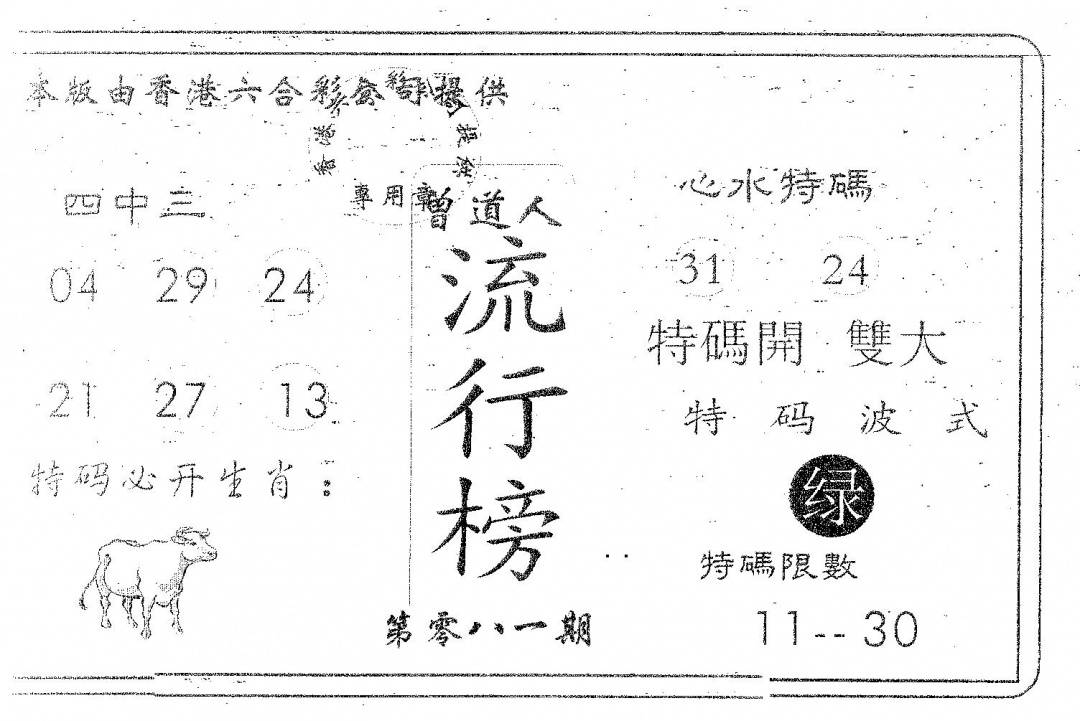 本版由香港六合彩公司提供
專用章
四中三
04 29 24
21 27 13
特码必开生肖：
曾道人
流行榜
第零八一期
心水特碼
31 24
特碼開 雙大
特码波式
绿
特碼限數
11--30